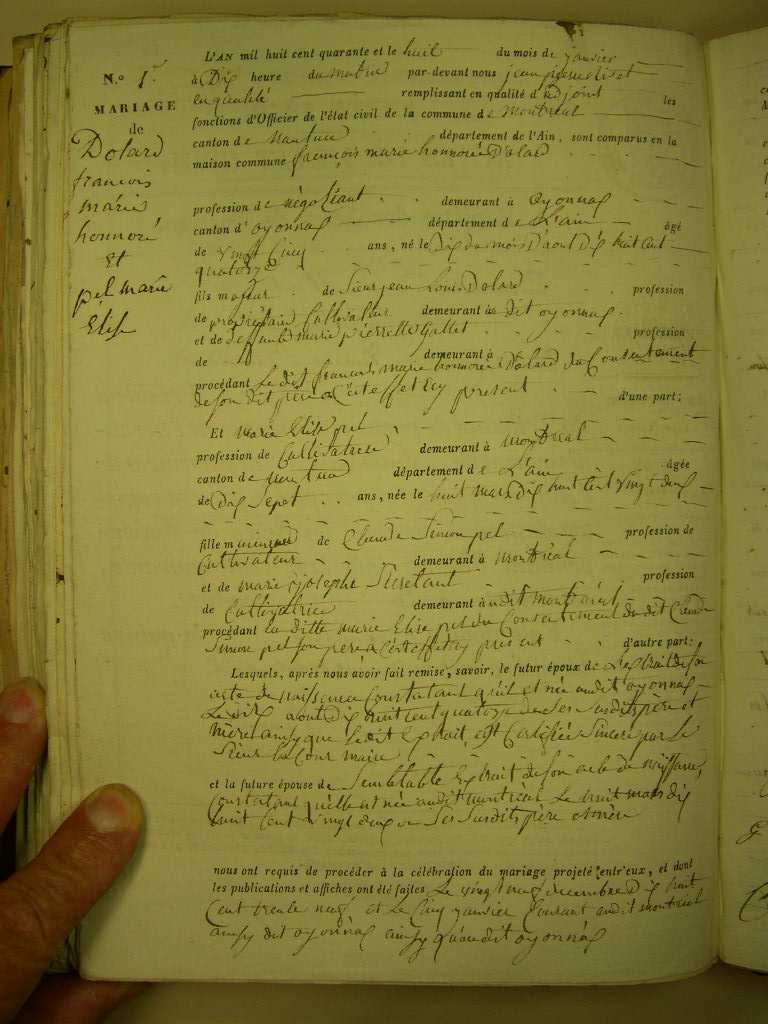 N.o 1er
MARIAGE
de
Dolard
françois
marie
honnoré
et
pel marie
Elise
L'AN mil huit cent quarante et le huit du mois de janvier
à Dix heure du matin par-devant nous jean pierre
en qualité remplissant en qualité d'adjoint les
fonctions d'Officier de l'état civil de la commune de Montreal
canton de Nantua département de l'Ain, sont comparus en la
maison commune françois marie honnoré Dolard
profession de négotiant demeurant à oyonnax
canton d'oyonnax département de L'ain âgé
de vingt Cinq ans, né le Dix du mois D'aout Dix huit Cent
quatorze
fils majeur de Sieur jean Louis Dolard profession
de propriétaire Cultivateur demeurant à dit oyonnax
et de deffunte marie pierrette Gallet profession
de demeurant à
procédant Le dit françois marie honnoré Dolard du Consentement
de son dit père à Cest effet icy présent d'une part;
Et marie Elise pel
profession de Cultivatrice demeurant à montreal
canton de nantua département de L'ain âgée
de Dix Sepet ans, née le huit mars Dix huit Cent vingt deux
fille mineure de Claude Simon pel profession de
Cultivateur demeurant à montréal
et de marie josephe Secretant profession
de Cultivatrice demeurant à udit montréal
procédant La ditte marie Elise pel du Consentement du dit Claude
Simon pel son père à Cest effet icy présent d'autre part;
Lesquels, après nous avoir fait remise, savoir, le futur époux de L'extrait de son
acte de naissence Constatant qu'il et née audit oyonnax
Le dix aout Dix huit Cent quatorze de Ses Susdits père et
mère ainsy que ledit Extrait est Certifiée Sincere par le
Sieur La Cour maire
et la future épouse de Semblable Extrait de son acte de naissance,
Constatant qu'elle et née audit montréal Le huit mars dix
huit Cent vingt deux de Ses Susdits père et mère
nous ont requis de procéder à la célébration du mariage projeté entr'eux, et dont
les publications et affiches ont été faites Le vingt neuf decembre Dix huit
Cent trente neuf et Le Cinq janvier Courant audit montréal
ainsy dit oyonnax ainsy qu'audit oyonnax